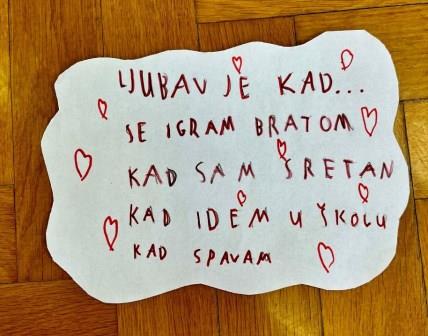 LJUBAV JE KAD...
SE IGRAM BRATOM
KAD SAM SRETAN
KAD IDEM U ŠKOLU
KAD SPAVAM